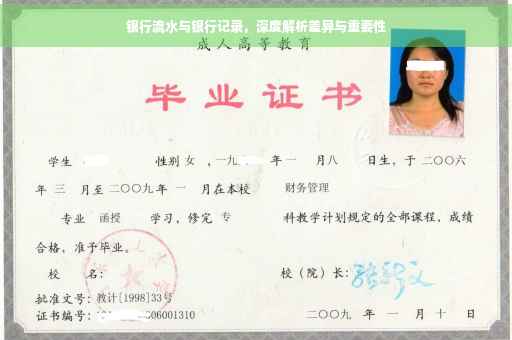 银行流水与银行记录，深度解析差异与重要性
成人高等教育
毕业证书
学生 性别 女 ，一九 年 一 月 八 日生，于 二〇〇六
年 三 月至 二〇〇九 年 一 月在本校 财务管理
专业 函授 学习，修完 专 科教学计划规定的全部课程，成绩
合格，准予毕业。
校 名： 校（院）长：
批准文号：教计[1998]33号
证书编号：1 006001310 二〇〇九 年 一 月 十 日